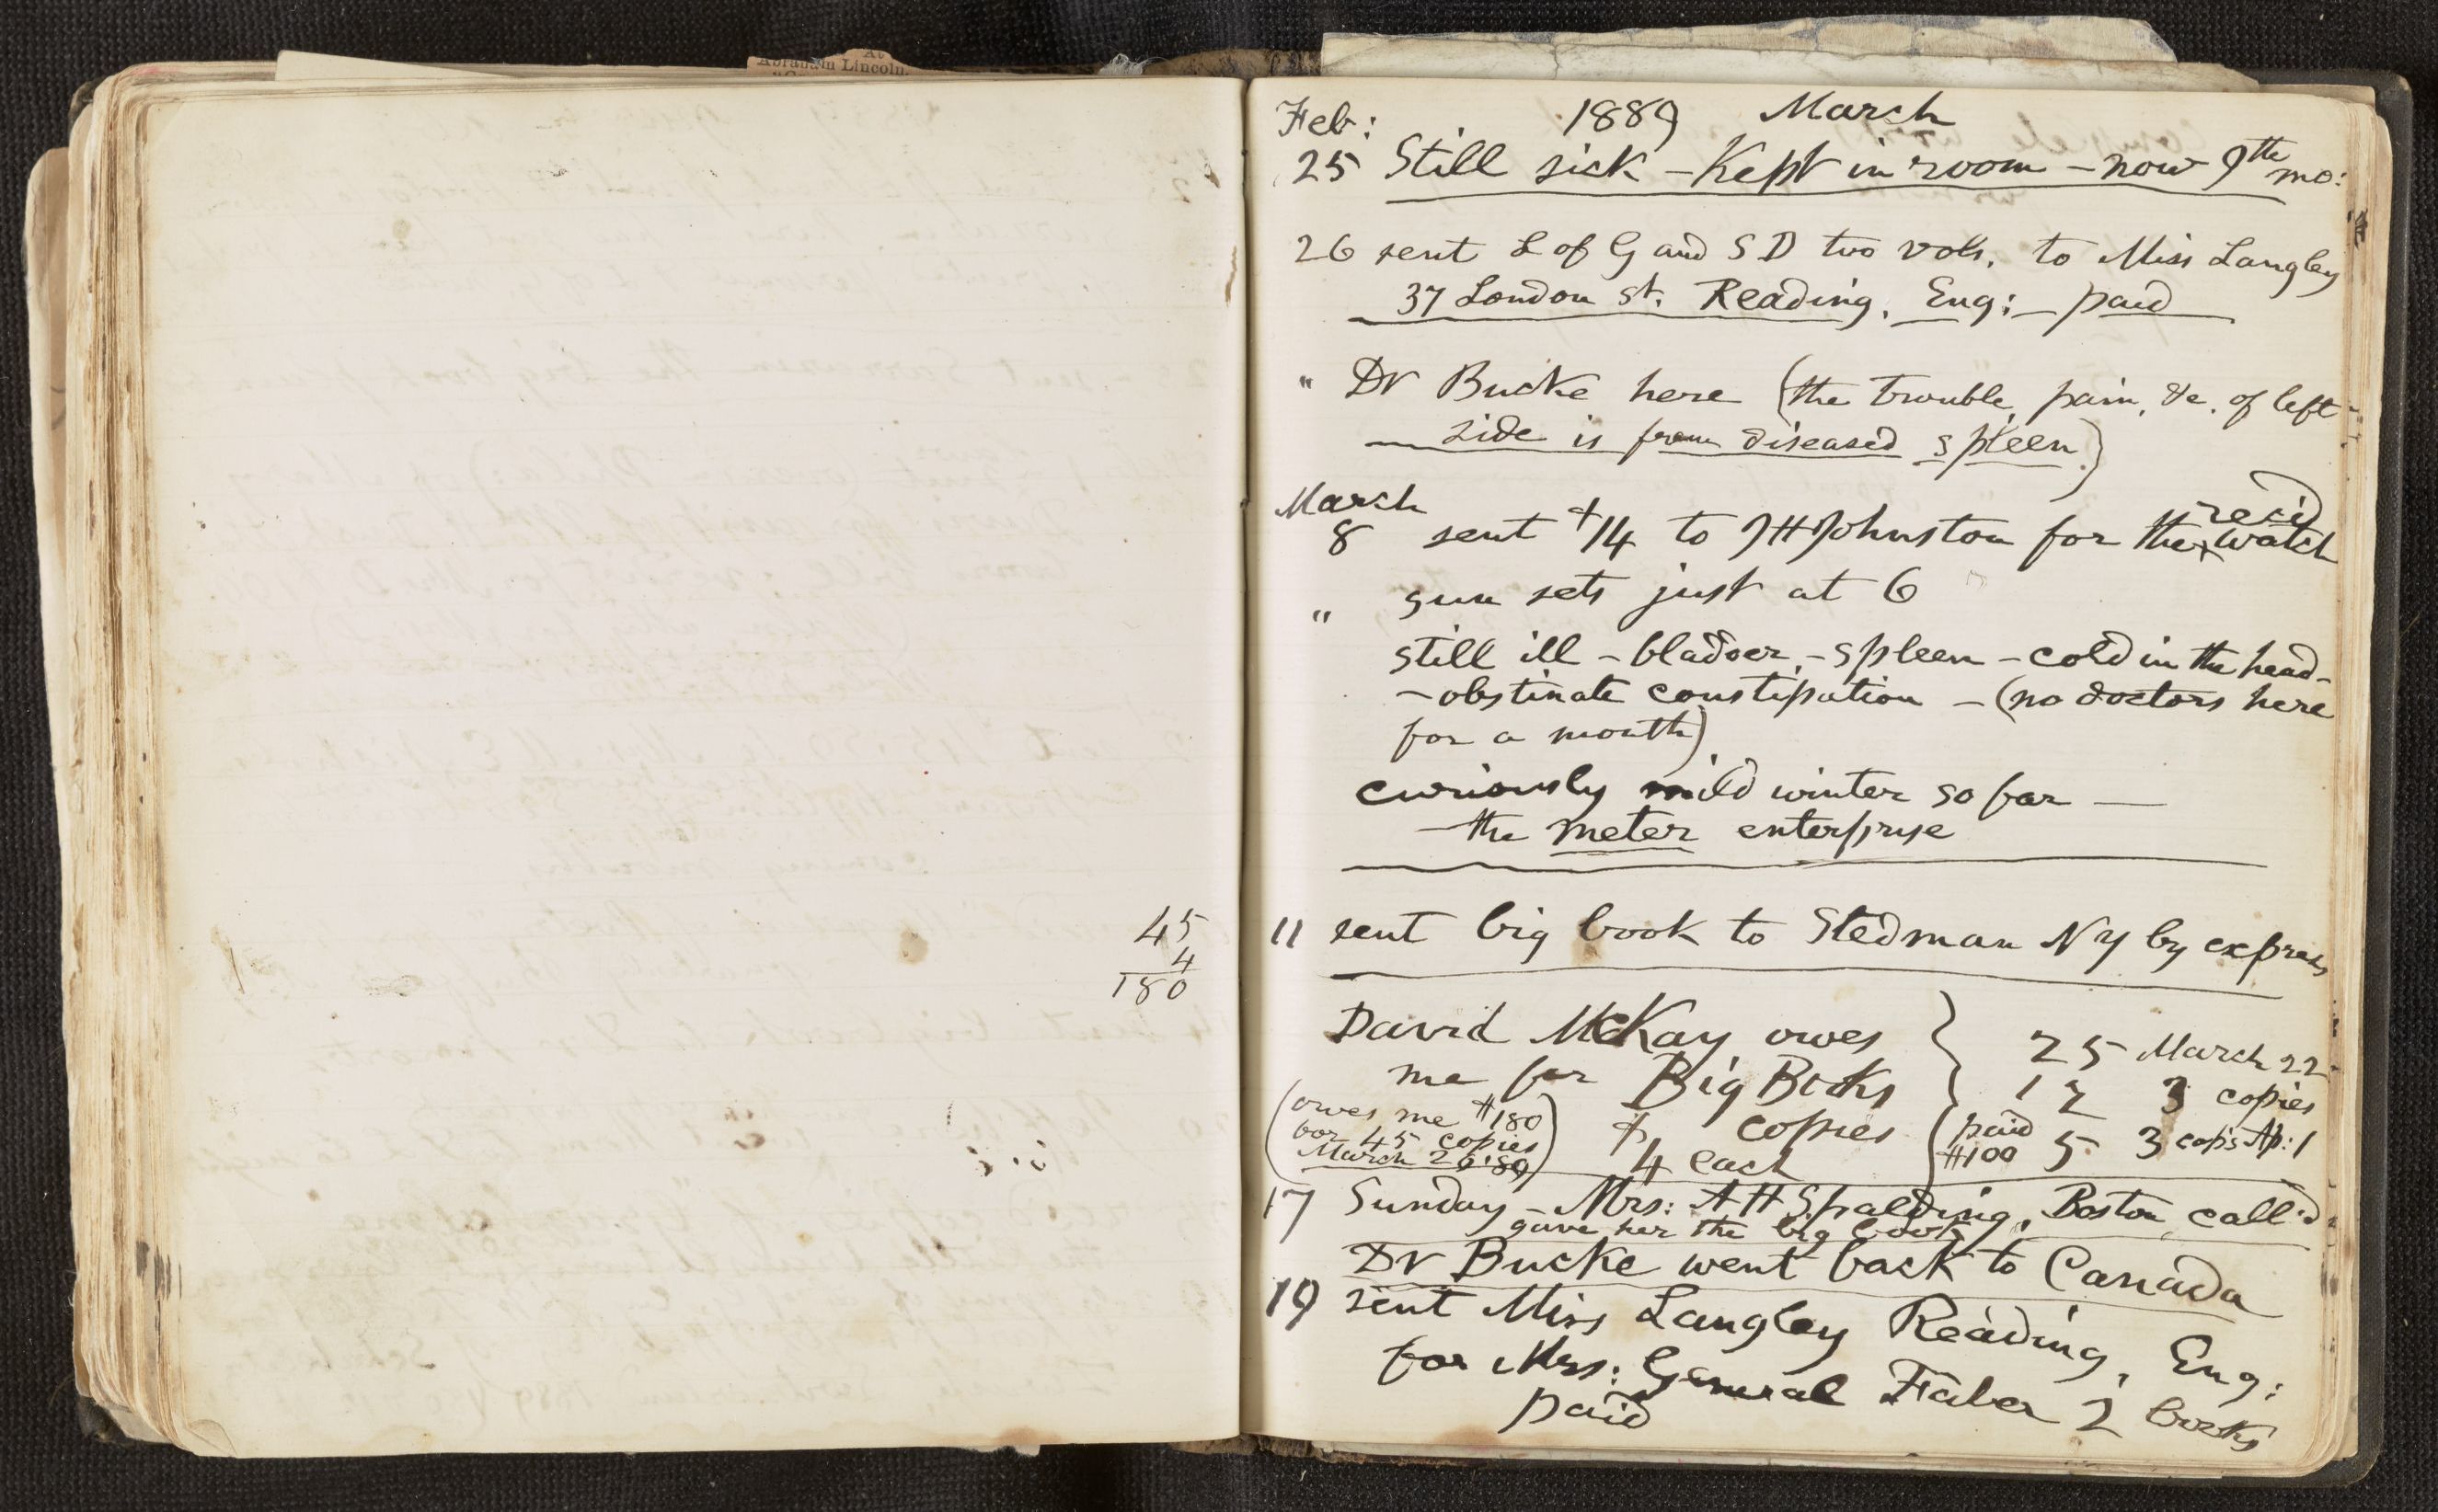 Abraham Lincoln.
45
4
180
Feb: 1889 March
25 Still sick - Kept in room - now 9th mo:
26 sent L of G and S D two vols. to Miss Langley
37 London st. Reading, Eng: - paid
" Dr Bucke here (the trouble, pain, &c. of left
side is from diseased spleen)
March
rec'd
8 sent $14 to J H Johnston for the watch
" sun sets just at 6
still ill - bladder, - spleen - cold in the head -
- obstinate constipation - (no doctors here
for a month)
curiously mild winter so far —
- the meter enterprise
11 sent big book to Stedman N Y by express
David McKay owes } 25 March 22
me for Big Books 12 3 copies
(owes me $180
for 45 copies
March 26 '89)
copies
$4 each
(paid
$100 5 3 cop's Ap: 1
17 Sunday - Mrs: A H Spalding, Boston, call'd
gave her the big book
Dr Bucke went back to Canada
19 sent Miss Langley Reading, Eng:
for Mrs: General Faber 2 books
paid